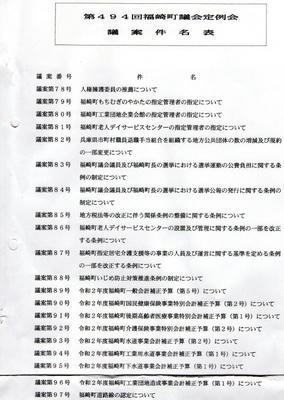 第４９４回福崎町議会定例会
議案件名表
議案番号 件名
議案第７８号 人権擁護委員の推薦について
議案第７９号 福崎町もちむぎのやかたの指定管理者の指定について
議案第８０号 福崎町工業団地企業会館の指定管理者の指定について
議案第８１号 福崎町老人デイサービスセンターの指定管理者の指定について
議案第８２号 兵庫県市町村職員退職手当組合を組織する地方公共団体の数の増減及び規約
の一部変更について
議案第８３号 福崎町議会議員及び福崎町長の選挙における選挙運動の公費負担に関する条
例の制定について
議案第８４号 福崎町議会議員及び福崎町長の選挙における選挙公報の発行に関する条例の
制定について
議案第８５号 地方税法等の改正に伴う関係条例の整備に関する条例について
議案第８６号 福崎町老人デイサービスセンターの設置及び管理に関する条例の一部を改正
する条例について
議案第８７号 福崎町指定居宅介護支援等の事業の人員及び運営に関する基準を定める条例
の一部を改正する条例について
議案第８８号 福崎町いじめ防止対策推進条例の制定について
議案第８９号 令和２年度福崎町一般会計補正予算（第５号）について
議案第９０号 令和２年度福崎町国民健康保険事業特別会計補正予算（第２号）について
議案第９１号 令和２年度福崎町後期高齢者医療事業特別会計補正予算（第１号）について
議案第９２号 令和２年度福崎町介護保険事業特別会計補正予算（第２号）について
議案第９３号 令和２年度福崎町水道事業会計補正予算（第２号）について
議案第９４号 令和２年度福崎町工業用水道事業会計補正予算（第１号）について
議案第９５号 令和２年度福崎町下水道事業会計補正予算（第１号）について
議案第９６号 令和２年度福崎町工業団地造成事業会計補正予算（第１号）について
議案第９７号 福崎町道路線の認定について